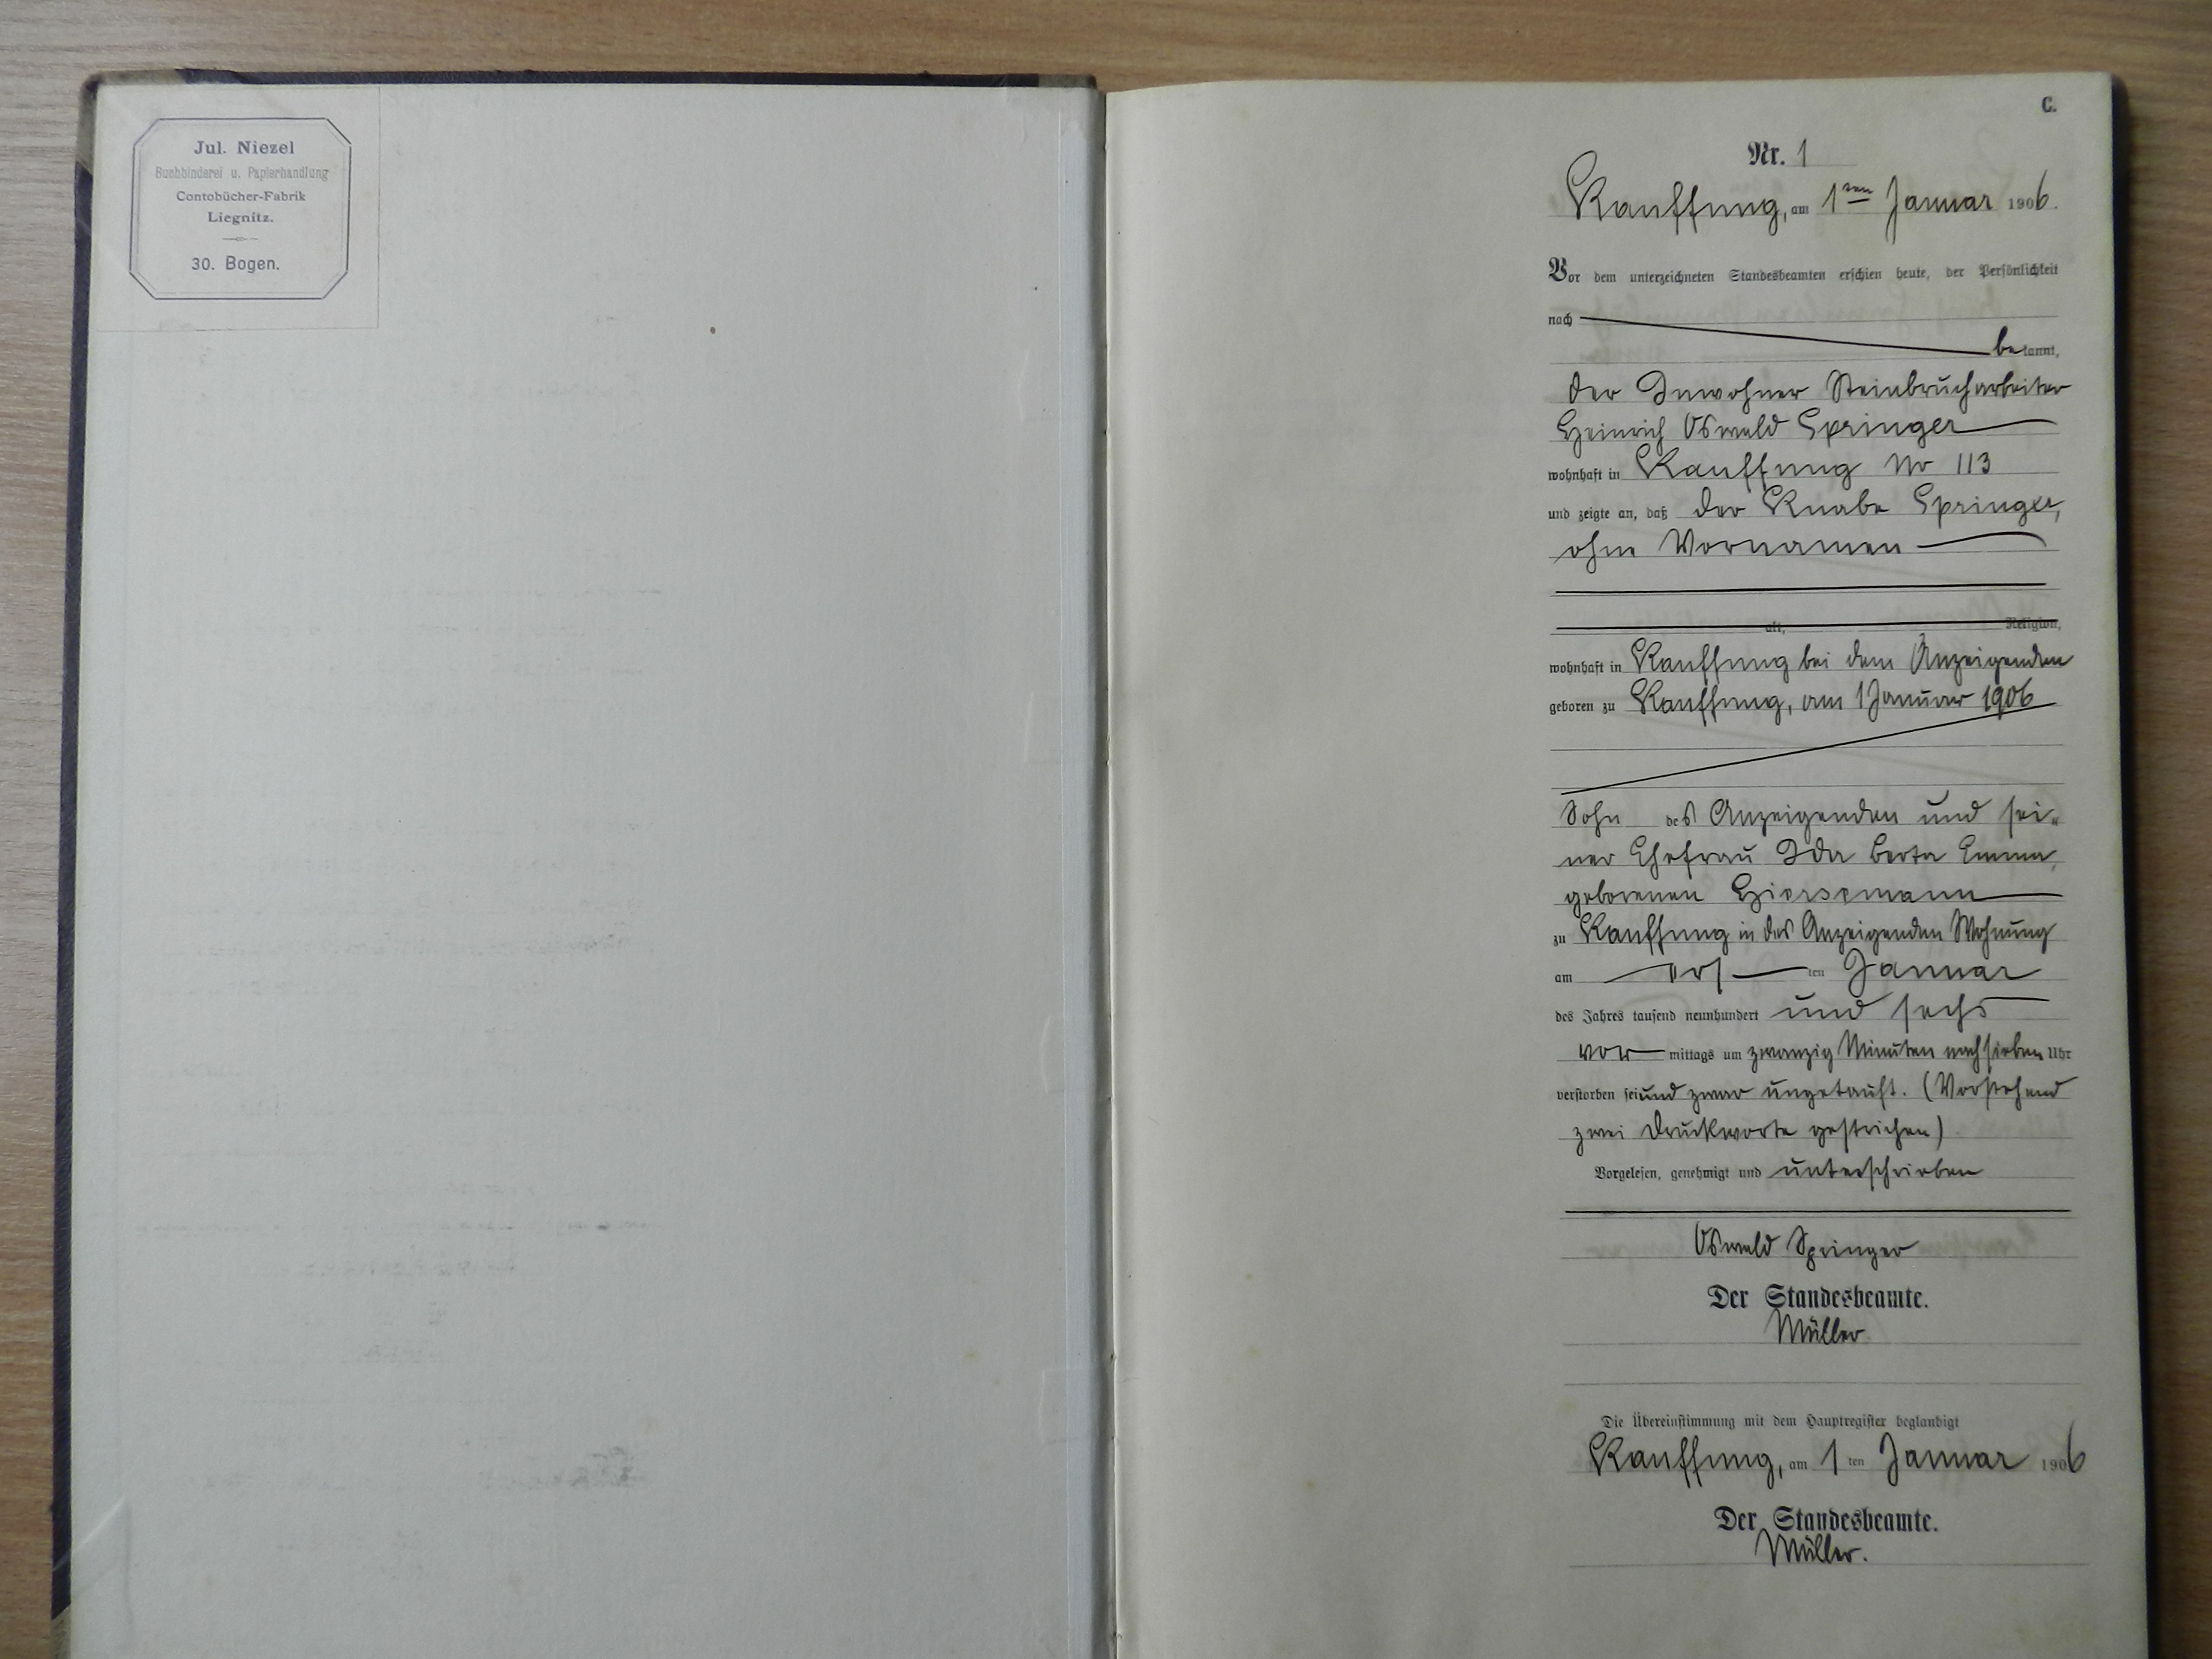 Jul. Niezel
Buchbinderei u. Papierhandlung
Contobücher-Fabrik
Liegnitz.
30. Bogen.
C.
Nr. 1
Kauffung, am 1ten Januar 1906.
Vor dem unterzeichneten Standesbeamten erschien heute, der Persönlichkeit
nach
bekannt,
der Inwohner Steinbrucharbeiter
Heinrich Oswald Springer
wohnhaft in Kauffung No 113
und zeigte an, daß der Knabe Springer,
ohne Vornamen
alt, Religion,
wohnhaft in Kauffung bei dem Anzeigenden
geboren zu Kauffung, am 1 Januar 1906
Sohn des Anzeigenden und sei-
ner Ehefrau Ida Berta Emma,
geborenen Hiersemann
zu Kauffung in des Anzeigenden Wohnung
am ersten Januar
des Jahres tausend neunhundert und sechs
vormittags um zwanzig Minuten nach sieben Uhr
verstorben sei und zwar ungetauft. (Vorstehend
zwei Druckworte gestrichen)
Vorgelesen, genehmigt und unterschrieben
Oswald Springer
Der Standesbeamte.
Müller
Die Übereinstimmung mit dem Hauptregister beglaubigt
Kauffung, am 1ten Januar 1906
Der Standesbeamte.
Müller.